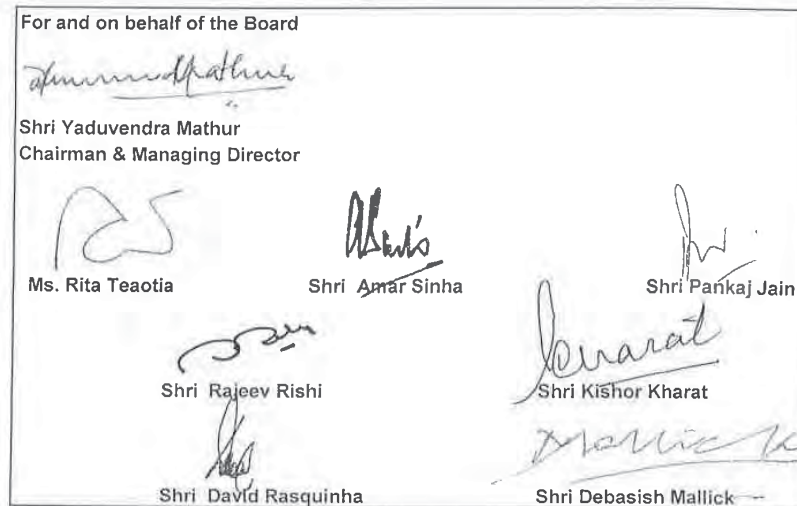 For and on behalf of the Board
Shri Yaduvendra Mathur
Chairman & Managing Director
Ms. Rita Teaotia
Shri Amar Sinha
Shri Pankaj Jain
Shri Rajeev Rishi
Shri Kishor Kharat
Shri David Rasquinha
Shri Debasish Mallick